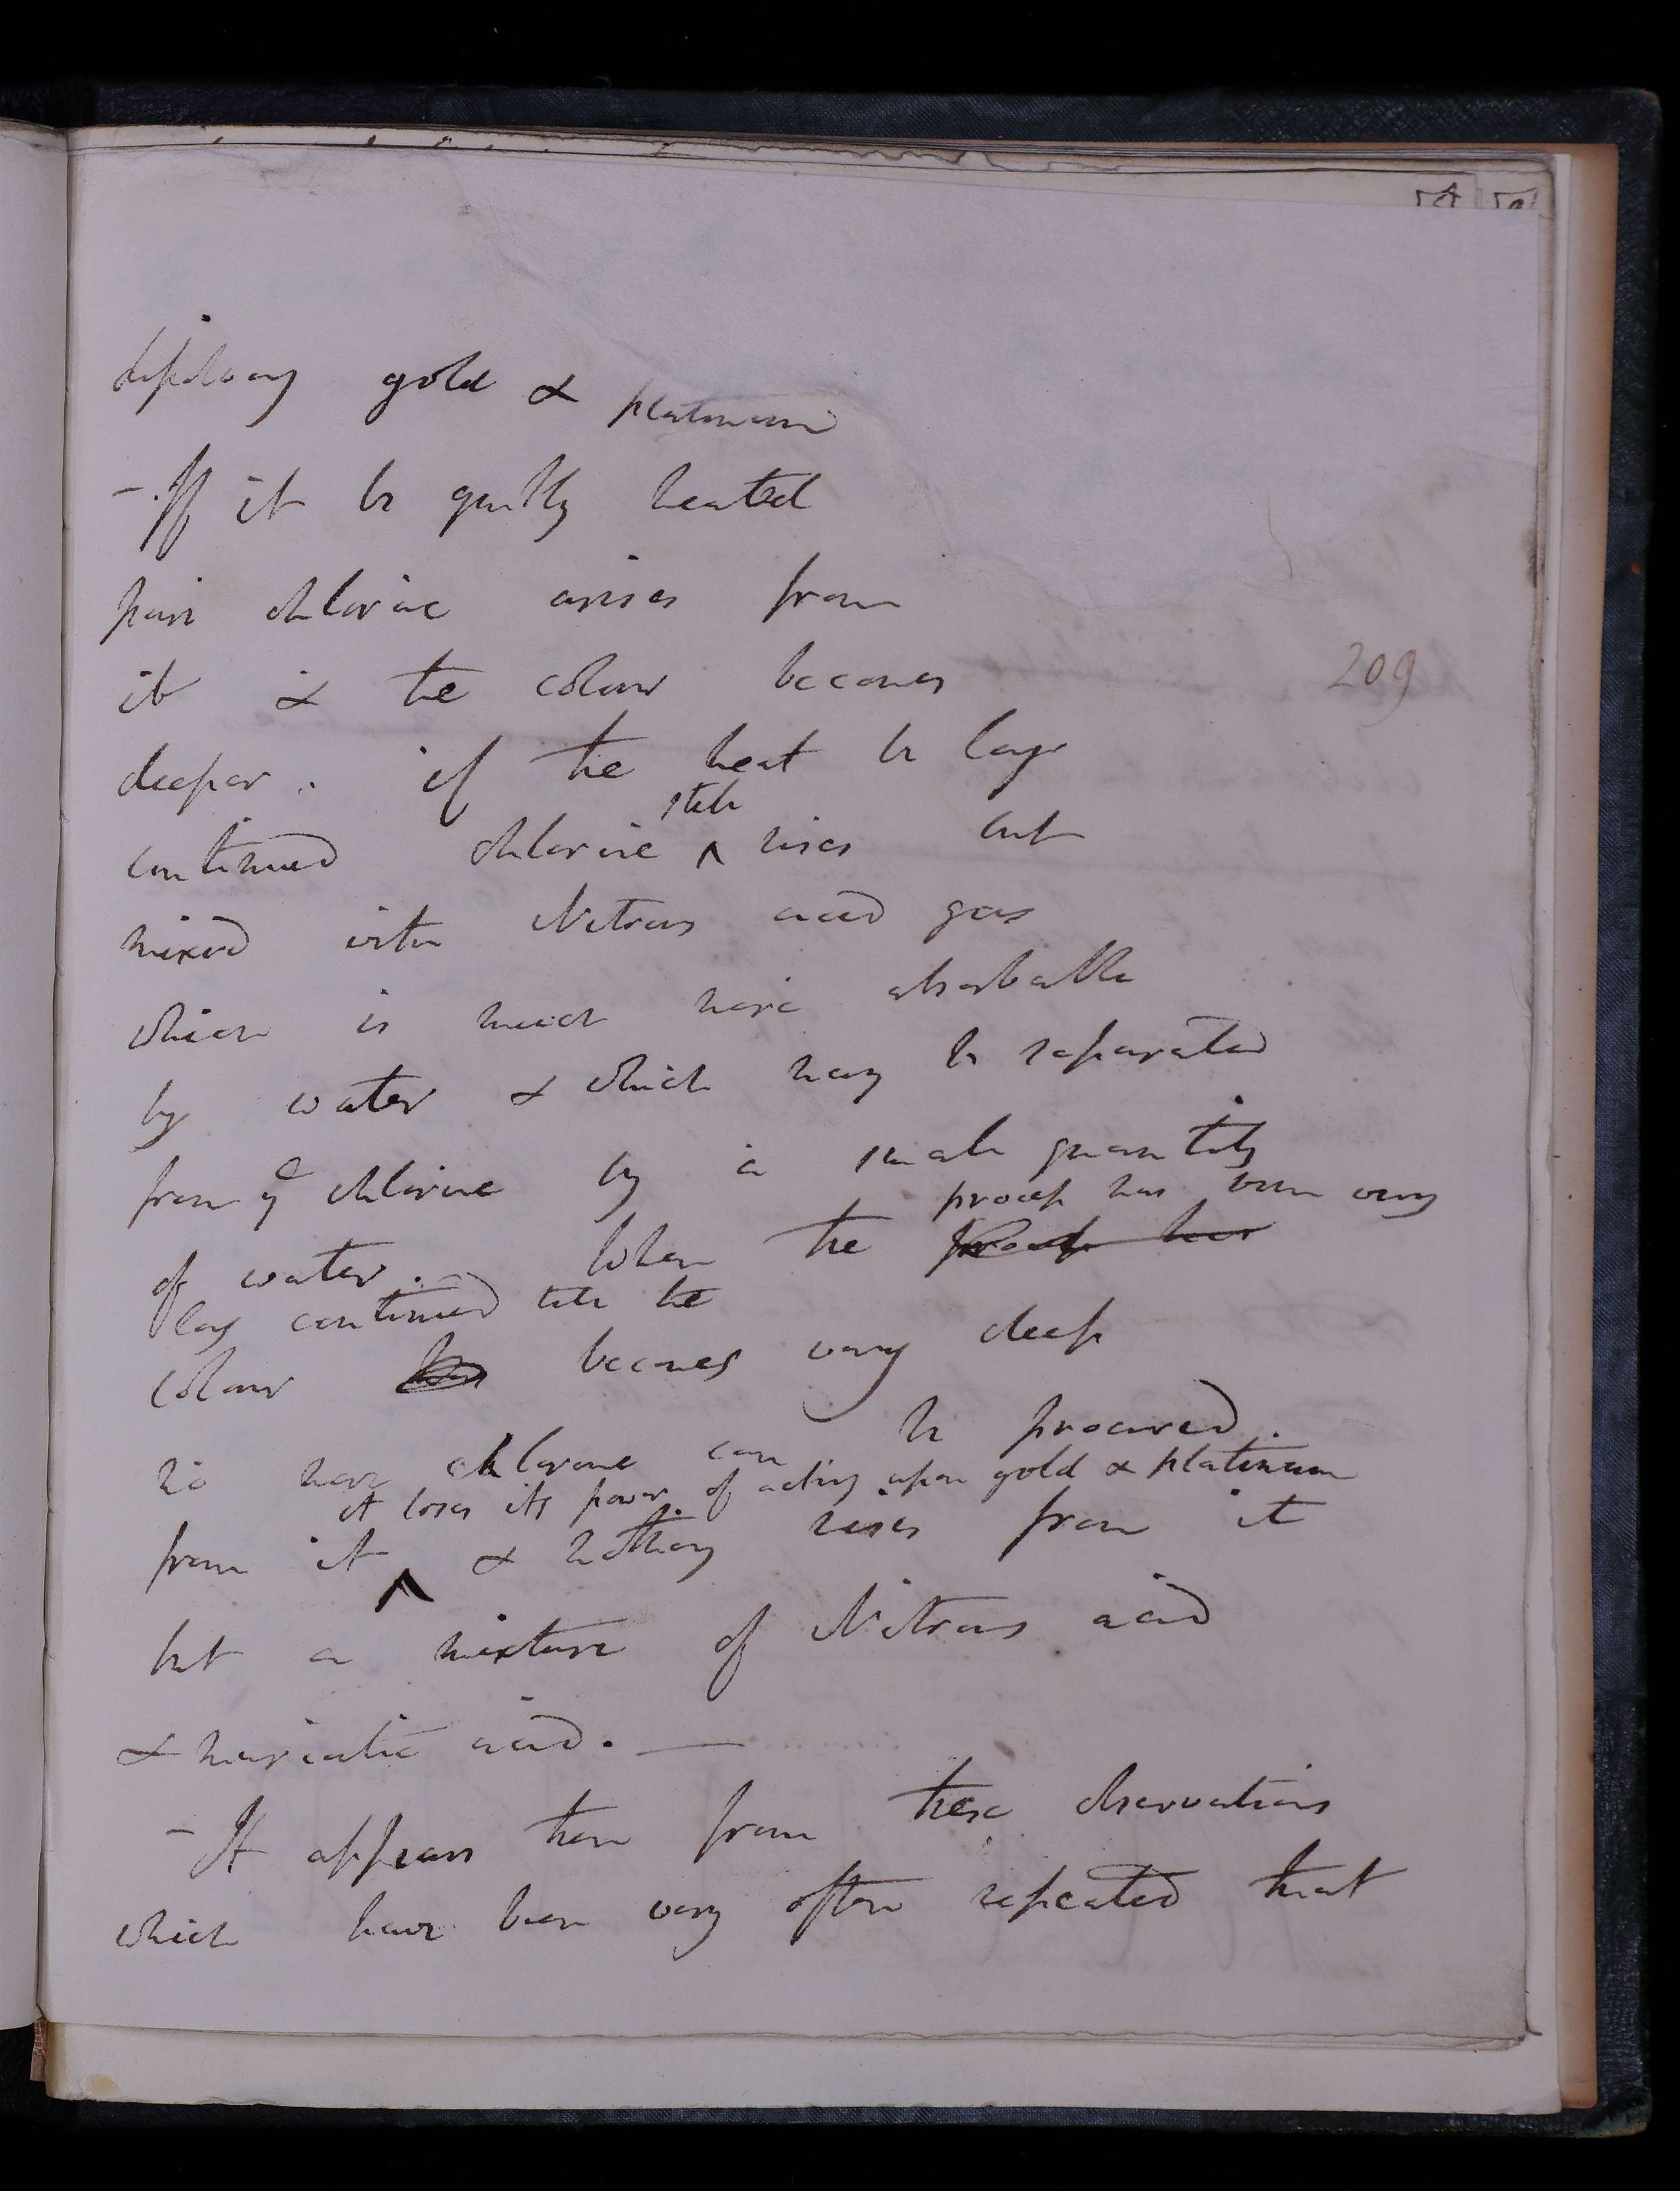 dissolving gold & platinum
- If it be gently heated
pure chlorine arises from
it & the colour becomes
209
deeper. if the heat be long
still
continued chlorine ^ rises but
mixed with Nitrous acid gas
which is much more absorbable
by water & which may be separated
from ye chlorine by a small quantity
process has been very
of water. When the process has
long continued till the
colour has becomes very deep
no more chlorine can be procured.
it loses its power of acting upon gold & platinum
from it ^ & nothing rises from it
but a mixture of Nitrous acid
& muriatic acid. —
- It appears then from these observations
which have been very often repeated that